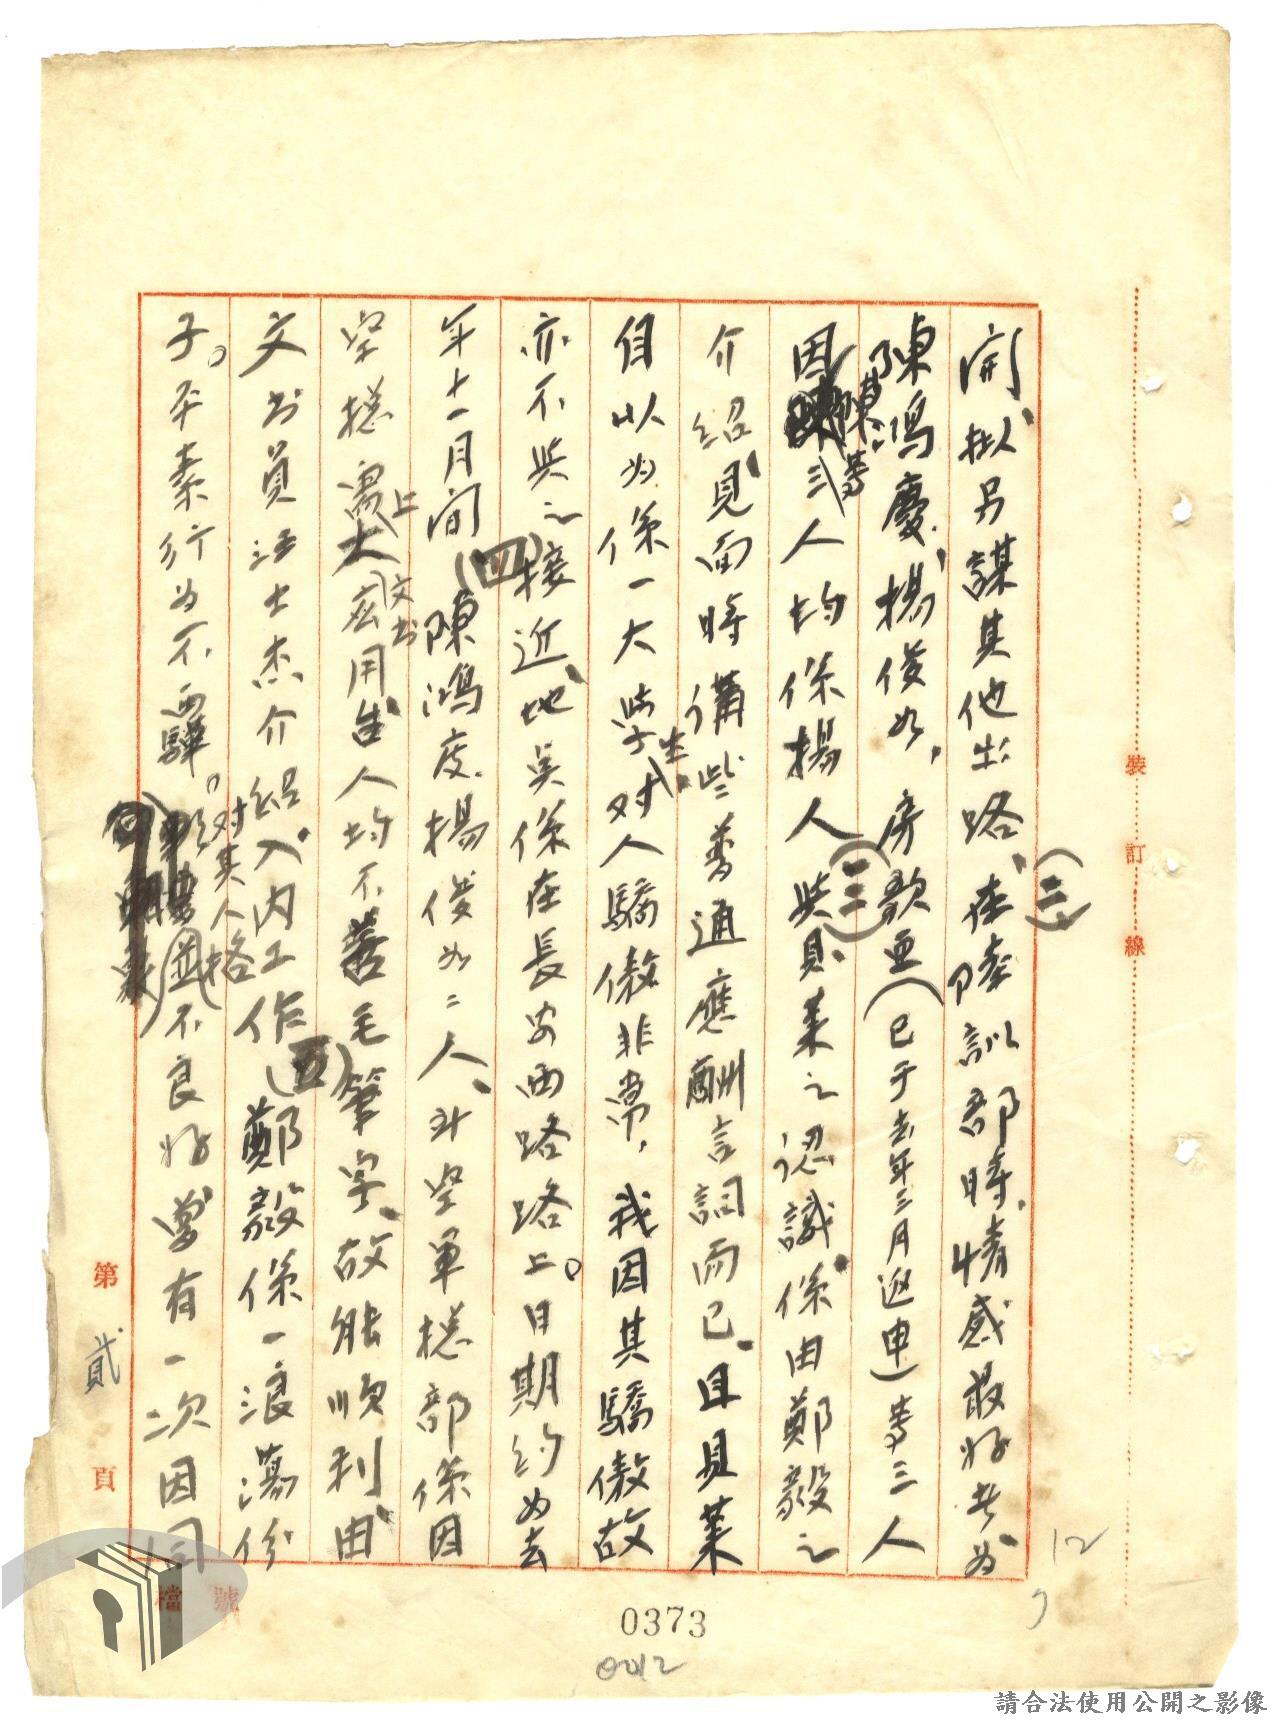 開，擬另謀其他出路，(二)在陸訓部時，情感最好者，為
陳鴻慶，楊俊如，房敬亞（已于去年三月返申）等三人
(三)因陳等三人均係楊人與吳某之認識，係由鄭毅之
介紹見面時僅講些普通應酬言詞而已，且吳某
自以為係一大學生，对人驕傲非常，我因其驕傲故
亦不與之接近，地吳係在長安西路路上。日期約為去
年十一月间(四)陳鴻慶，楊俊如二人，到空軍總部係因
空總上文书用人均不善毛筆字，故能順利由
文书員汪士杰介紹入內工作(五)鄭毅係一浪蕩份
子。平素行為不对其人格並不良好，曾有一次因同
裝訂線
第貳頁
檔號
12
0373
0012
請合法使用公開之影像